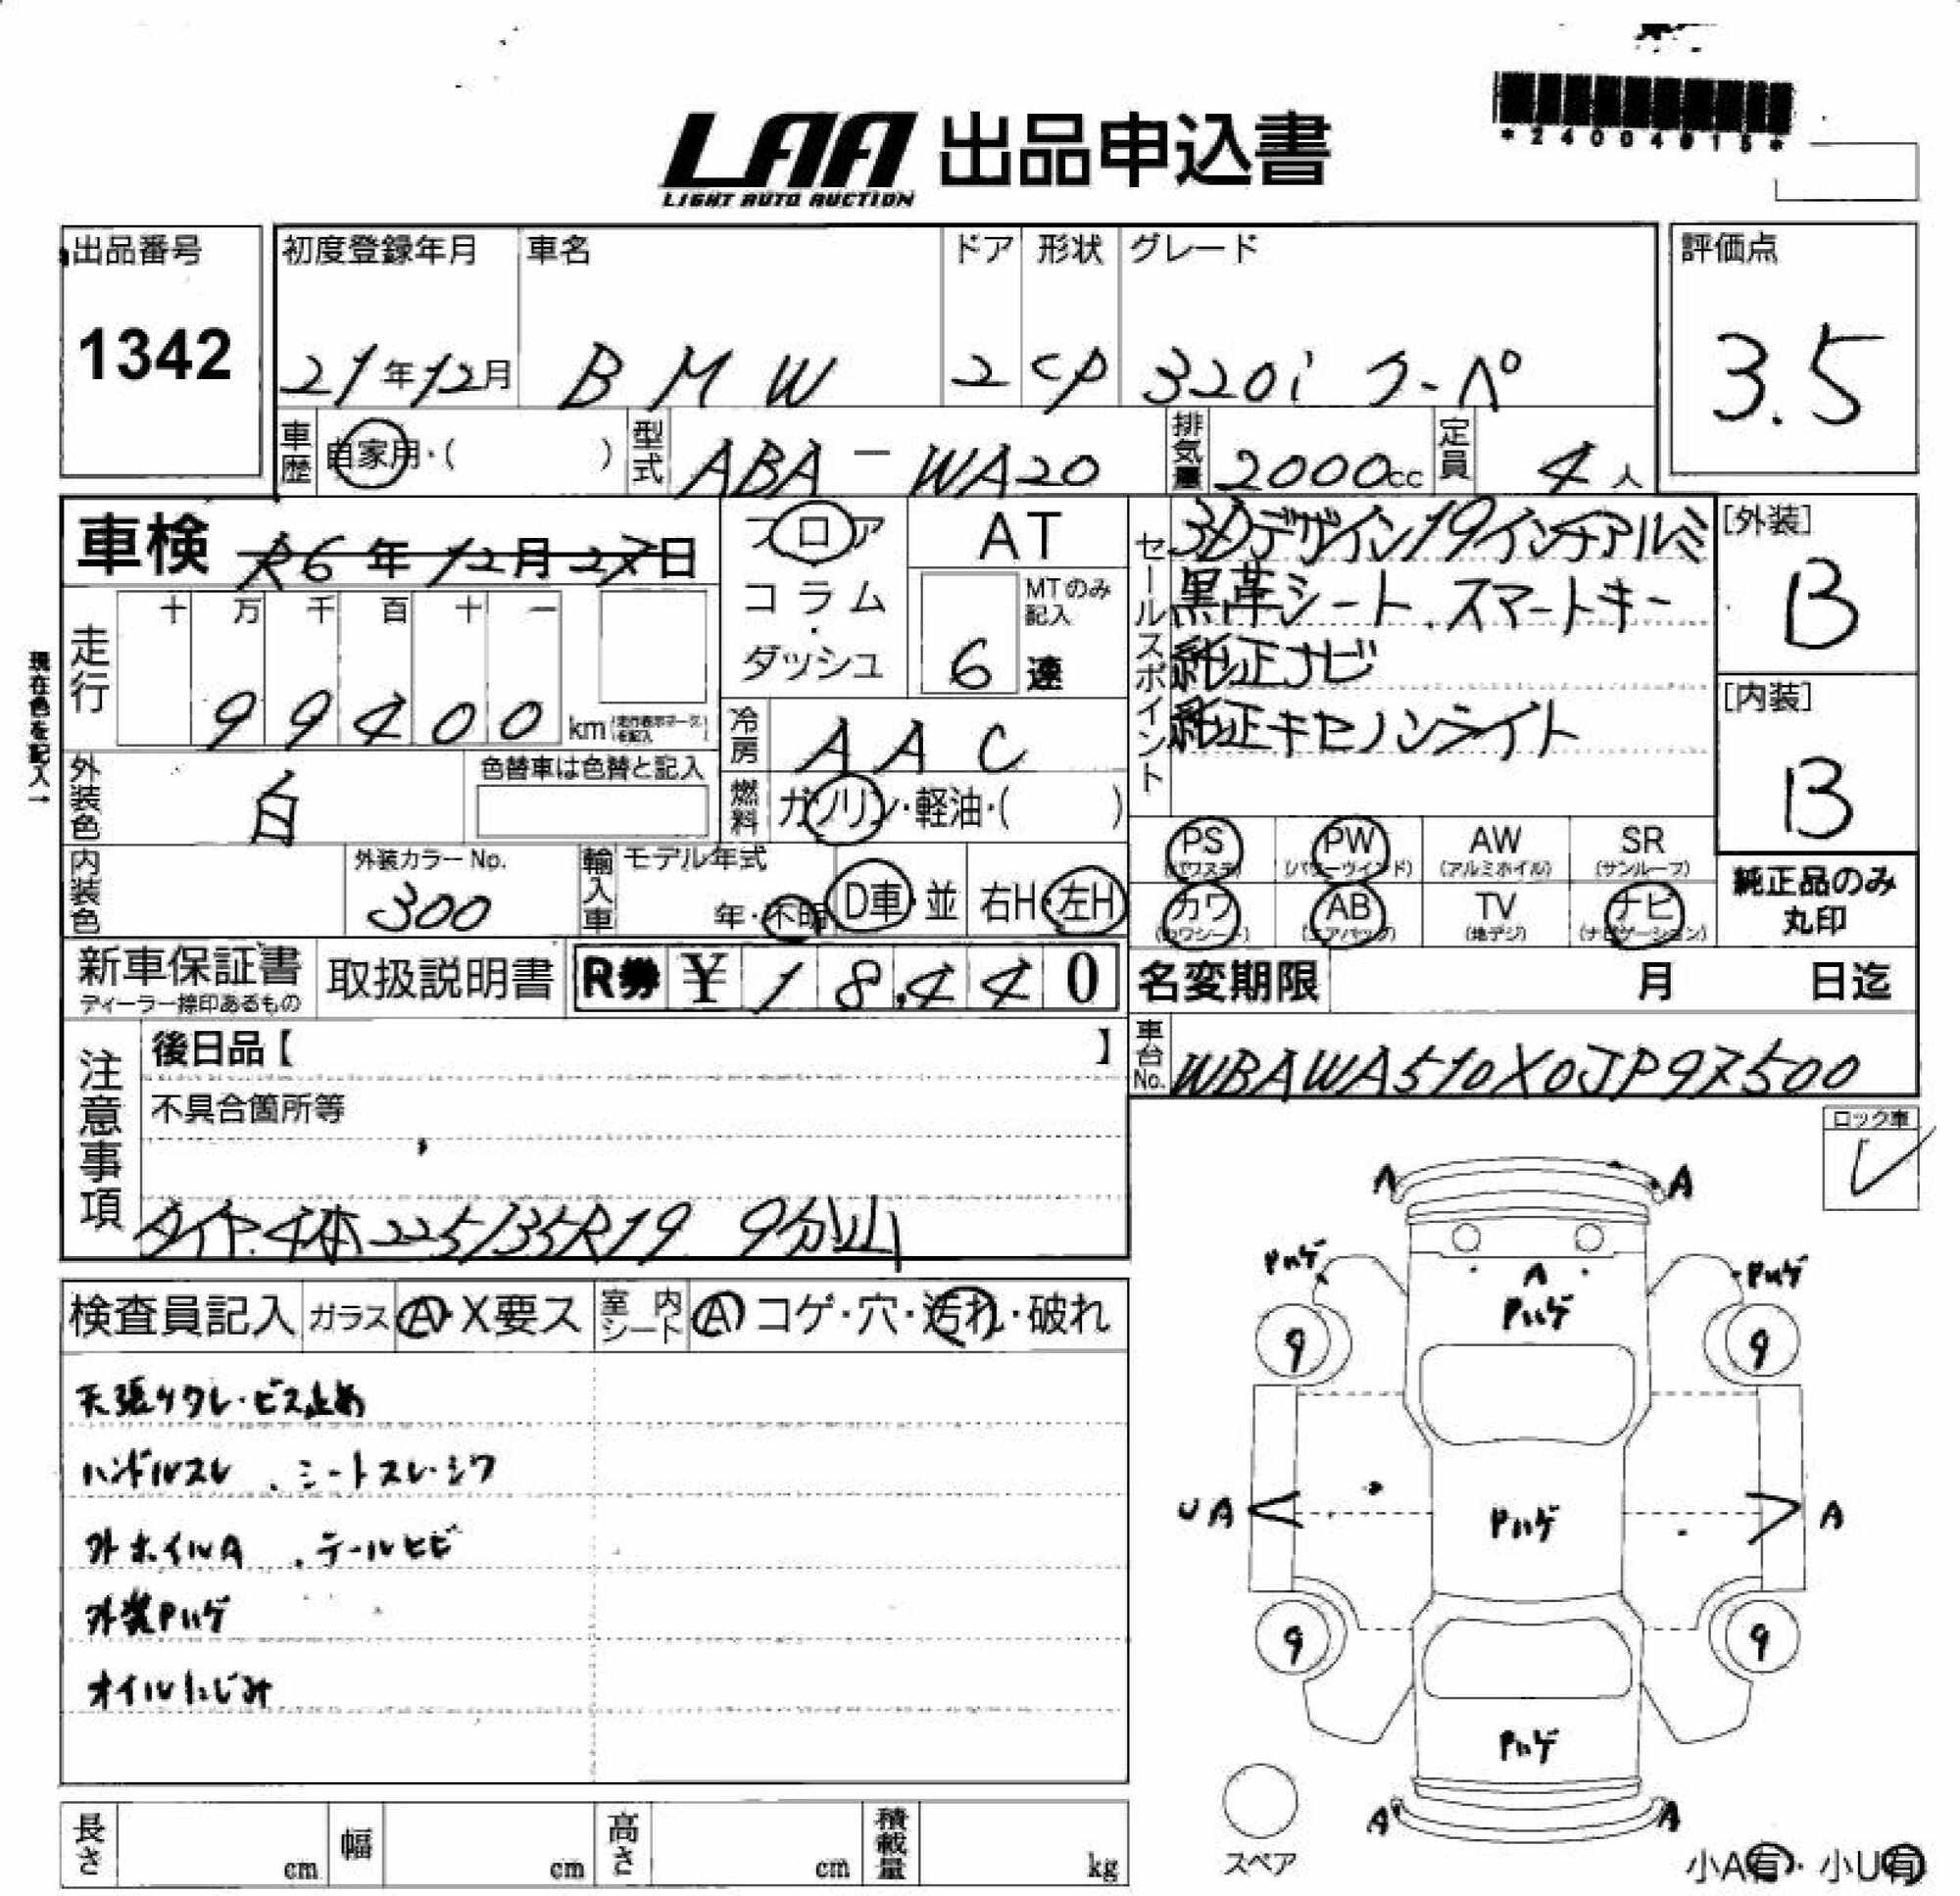 *24004915*
LAA 出品申込書
LIGHT AUTO AUCTION
出品番号
1342
初度登録年月
21年12月
車名
BMW
ドア
2
形状
CP
グレード
320i クーペ
評価点
3.5
車歴
自家用・( )
型式
ABA-WA20
排気量
2000cc
定員
4人
車検
R6年12月27日
フロア
コラム
・
ダッシュ
AT
MTのみ
記入
6速
セールスポイント
3Dデザイン19インチアルミ
黒革シート.スマートキー
純正ナビ
純正キセノンライト
[外装]
B
[内装]
B
現在色を記入→
走行
十 万 千 百 十 一
99400 km
冷房
AAC
外装色
白
色替車は色替と記入
燃料
ガソリン・軽油・( )
内装色
外装カラーNo.
300
輸入車
モデル年式
年・不明
D車・並
右H・左H
PS
(パワステ)
PW
(パワーウインド)
AW
(アルミホイル)
SR
(サンルーフ)
カワ
(カワシート)
AB
(エアバック)
TV
(地デジ)
ナビ
(ナビゲーション)
純正品のみ
丸印
新車保証書
ディーラー捺印あるもの
取扱説明書
R券 ¥18,440
名変期限
月 日迄
注意事項
後日品【 】
不具合箇所等
タイヤ.4本225/35R19 9分山
車台No.
WBAWA510X0JP97500
ロック車
レ
検査員記入
ガラス
A・X要ス
室内シート
A コゲ・穴・汚れ・破れ
天張りタレ・ビス止め
ハンドルスレ.シートスレ・シワ
外ホイルA.テールヒビ
外装Pハゲ
オイルにじみ
A A
Pハゲ Pハゲ
A
Pハゲ
9 9
UA A
Pハゲ
9 9
Pハゲ
A A
スペア
小A有・小U有
長さ
cm
幅
cm
高さ
cm
積載量
kg